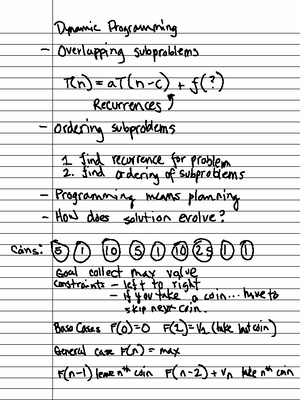 Dynamic Programming
- Overlapping subproblems
T(n) = aT(n-c) + f(?)
Recurrences
- Ordering subproblems
1. find recurrence for problem
2. find ordering of subproblems
- Programming means planning
- How does solution evolve?
Coins: 5 1 10 5 1 10 25 1 1
Goal collect max value
Constraints - left to right
- if you take a coin... have to
skip next coin.
Base Cases F(0)=0 F(1)=V₁ (take last coin)
General case F(n) = max
F(n-1) leave nth coin F(n-2) + Vn take nth coin